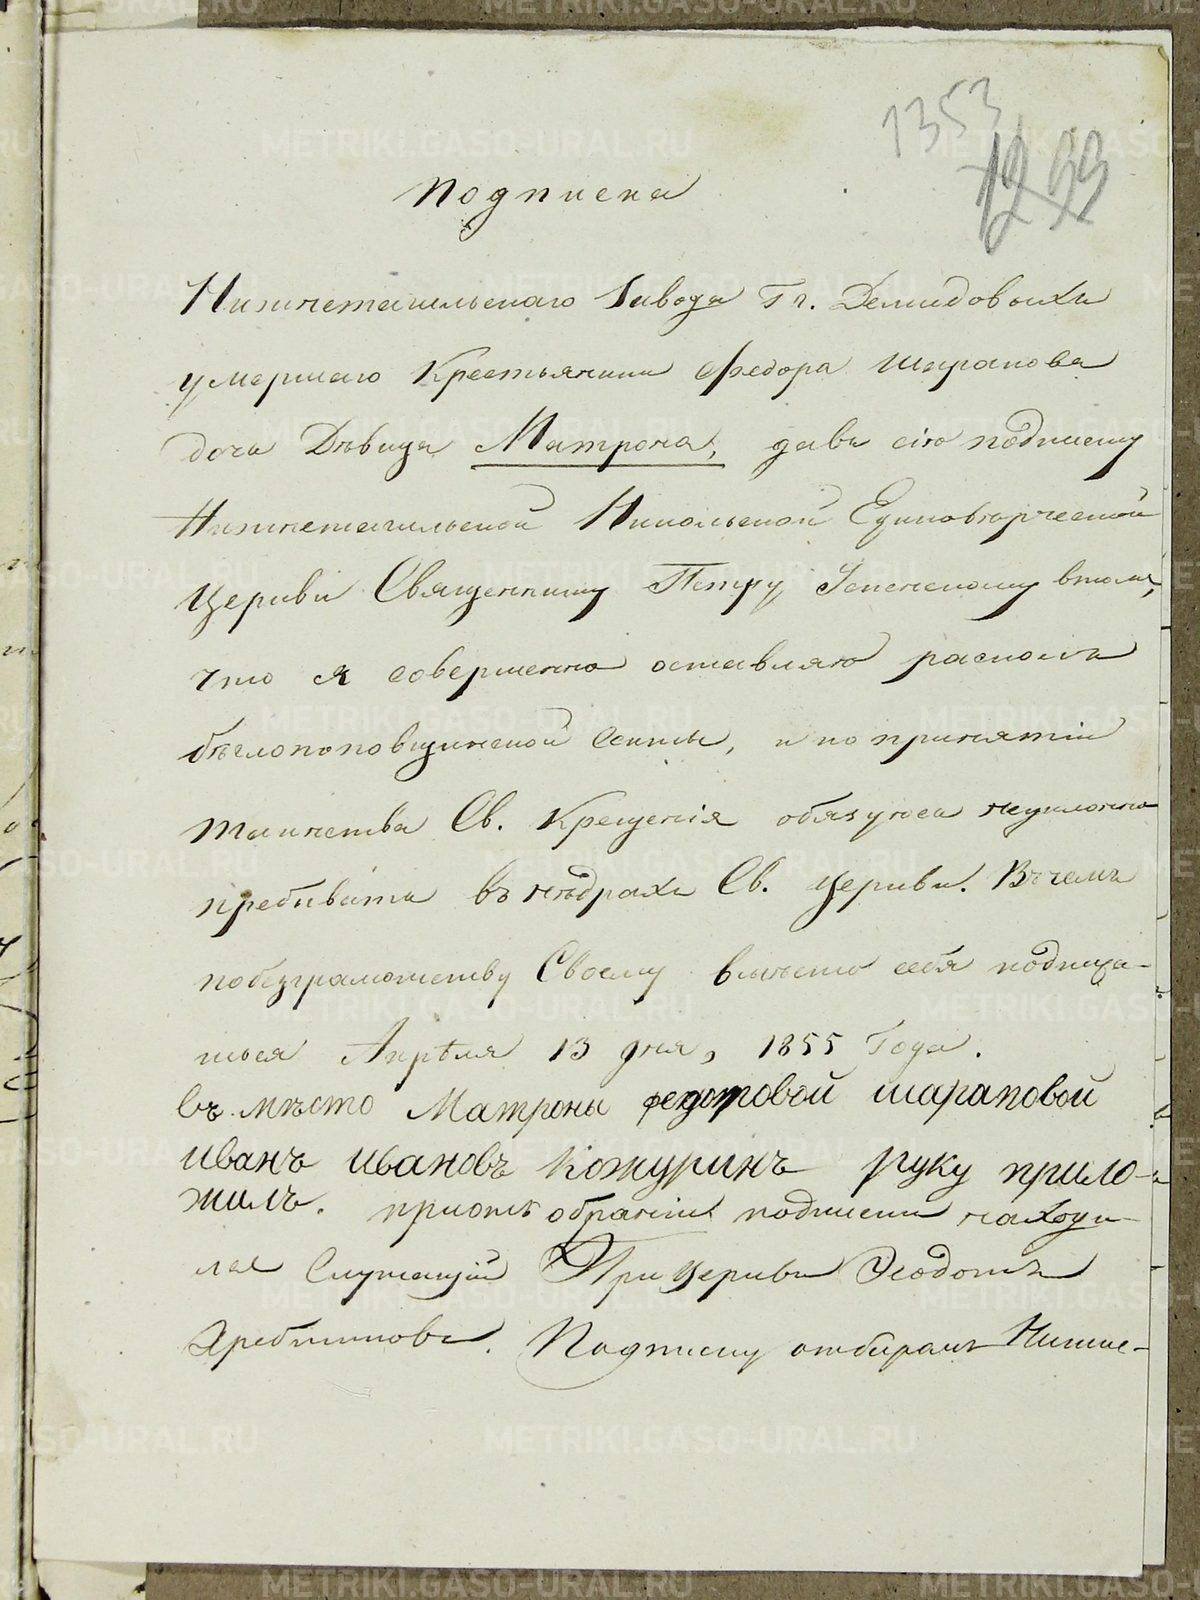 1353
1293
Подписка
Нижнетагильскаго Завода Гг. Демидовыхъ
умершаго Крестьянина Федора Шарапова
дочь Дѣвица Матрона, давъ сію подписку
Нижнетагильской Никольской Единовѣрческой
Церкви Священнику Петру Успенскому втомъ,
что я совершенно оставляю расколъ
бѣглопоповщинской Секты, и по принятіи
таинства Св. Крещенія обязуюсь неуклонно
пребывать въ нѣдрахъ Св. Церкви. Въ чемъ
побезграмотству Своему вмѣсто себя подписа-
ться Апрѣля 13 дня, 1855 Года.
въ мѣсто Матроны федотовой шараповой
иванъ ивановъ кожуринъ руку прило-
жилъ. приотъ обраніи подписки находи-
лся Служащій При Церкви Ѳеодотъ
Хребтиковъ. Подписку отбиралъ Нижне-
METRIKI.GASO-URAL.RU